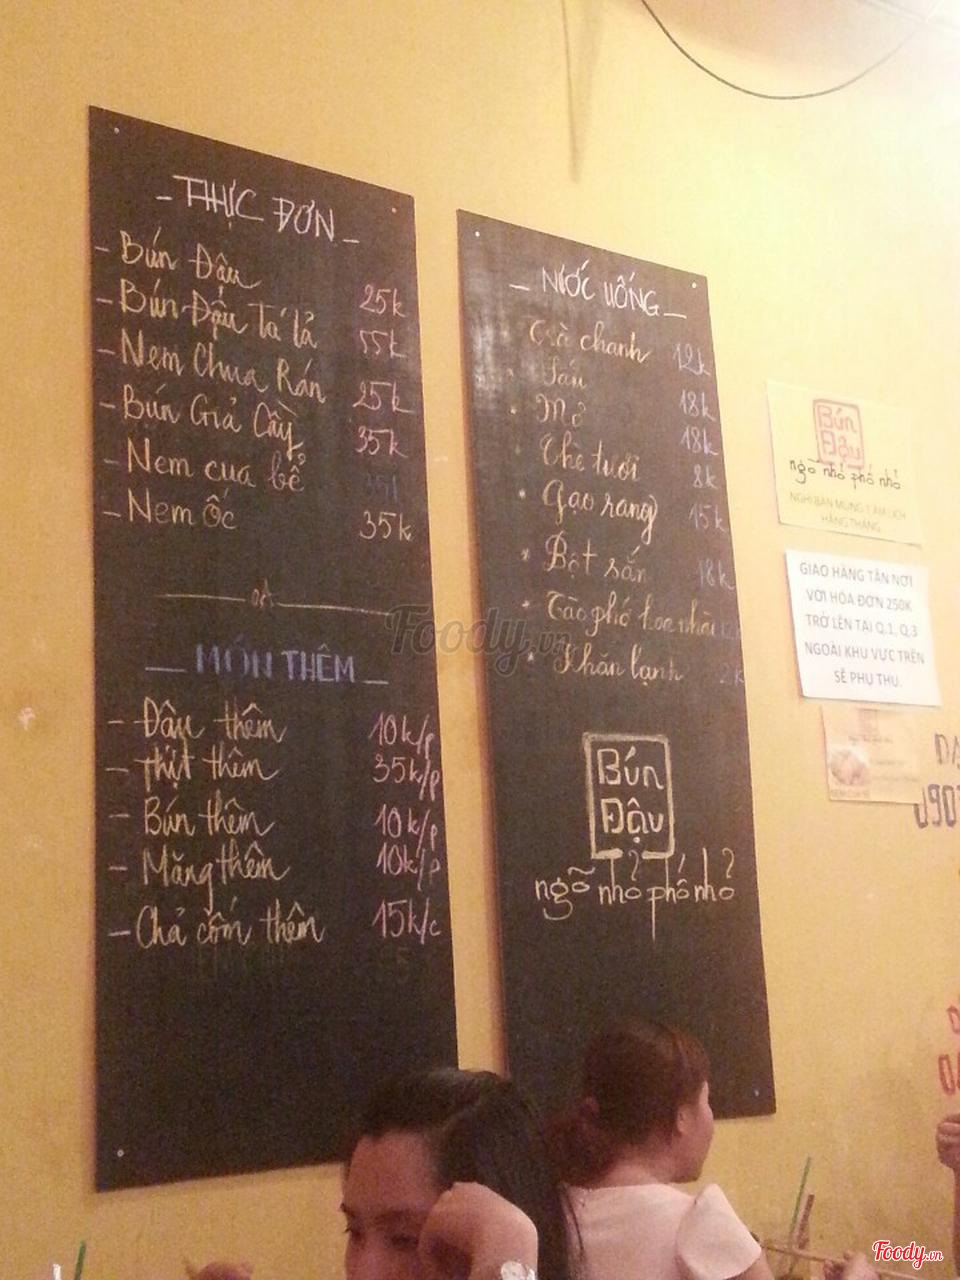 - THỰC ĐƠN -
- Bún Đậu 25k
- Bún Đậu Tá lả 55k
- Nem Chua Rán 25k
- Bún Giả Cầy 35k
- Nem cua bể 35k
- Nem Ốc 35k
MÓN THÊM
- Đậu thêm 10k/p
- thịt thêm 35k/p
- Bún thêm 10k/p
- Măng thêm 10k/p
- Chả cốm thêm 15k/c
- NƯỚC UỐNG -
Trà chanh 12k
Sấu 18k
Mơ 18k
Chè tươi 8k
Gạo rang 15k
Bột sắn 18k
Tào phớ hoa nhài 12k
Khăn lạnh 2k
Bún
Đậu
ngõ nhỏ phố nhỏ
Bún
Đậu
ngõ nhỏ phố nhỏ
NGHỈ BÁN MÙNG 1 ÂM LỊCH
HÀNG THÁNG
GIAO HÀNG TẬN NƠI
VỚI HÓA ĐƠN 250K
TRỞ LÊN TẠI Q.1, Q.3
NGOÀI KHU VỰC TRÊN
SẼ PHỤ THU.
090
Foody.vn
Foody.vn